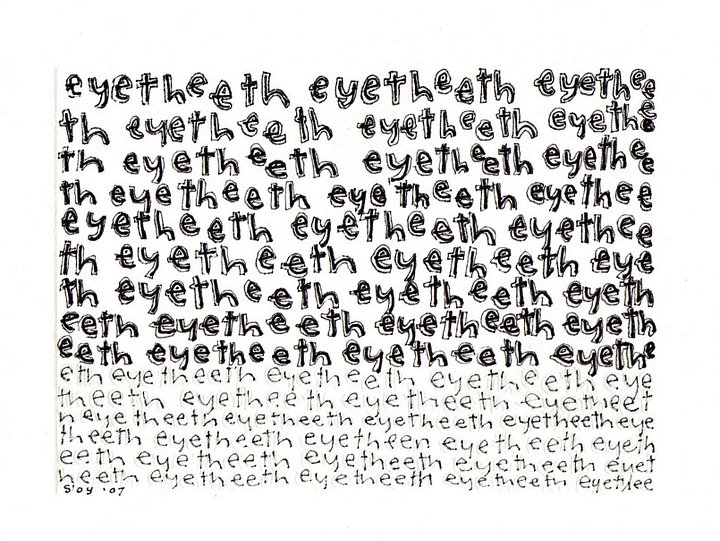 eyetheeth eyetheeth eyethee
th eyetheeth eyetheeth eyethe
th eyetheeth eyetheeth eyethee
th eyetheeth eyetheeth eyethee
eyetheeth eyetheeth eyethee
th eyetheeth eyetheeth eye
th eyetheeth eyetheeth eyeth
eeth eyetheeth eyetheeth eyeth
eeth eyetheeth eyetheeth eyethe
eth eyetheeth eyetheeth eyetheeth eye
theeth eyetheeth eyetheeth eyetheet
h eyetheeth eyetheeth eyetheeth eyetheetheye
theeth eyetheeth eyetheen eyetheeth eyeth
eeth eyetheeth eyetheeth eyetheeth eyet
heeth eyetheeth eyetheeth eyetheeth eyethee
s'oy '07